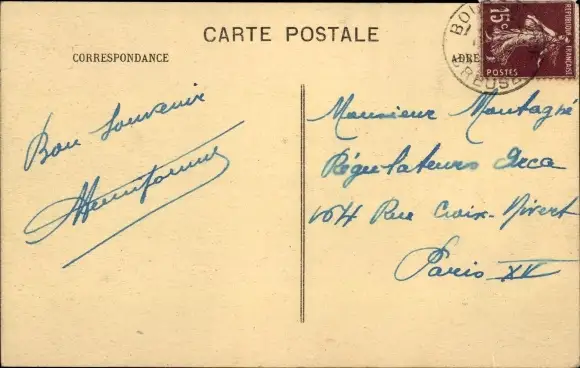 CARTE POSTALE
CORRESPONDANCE
ADRE
BO
CREUSE
15c
REPUBLIQUE FRANCAISE
POSTES
Bon souvenir
Monsieur Montagne
Régulateurs Arca
164 Rue Croix-Nivert
Paris XV